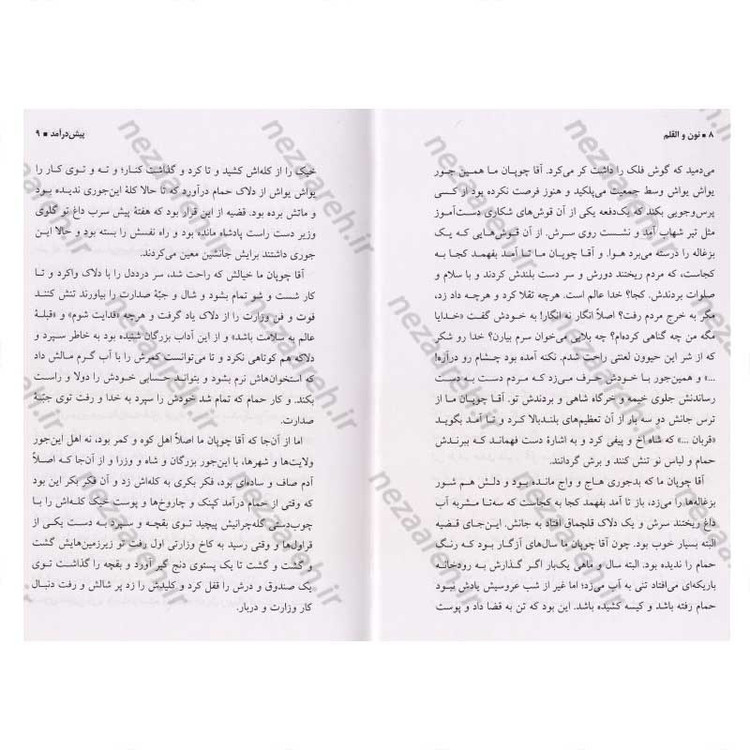 ۸ ■ نون و القلم
می‌دمید که گوش فلک را داشت کر می‌کرد. آقا چوپان ما همین جور
یواش یواش وسط جمعیت می‌پلکید و هنوز فرصت نکرده بود از کسی
پرس‌وجویی بکند که یک‌دفعه یکی از آن قوش‌های شکاری دست‌آموز
مثل تیر شهاب آمد و نشست روی سرش. از آن قوش‌هایی که یک
بزغاله را درسته می‌برد هوا. و آقا چوپان ما تا آمد بفهمد کجا به
کجاست، که مردم ریختند دورش و سر دست بلندش کردند و با سلام و
صلوات بردندش. کجا؟ خدا عالم است. هرچه تقلا کرد و هرچه داد زد،
مگر به خرج مردم رفت؟ اصلاً انگار نه انگار! به خودش گفت «خدایا
مگه من چه گناهی کرده‌ام؟ چه بلایی می‌خوان سرم بیارن؟ خدا رو شکر
که از شر این حیوون لعنتی راحت شدم. نکنه آمده بود چشام رو درآره!
...» و همین‌جور با خودش حرف می‌زد که مردم دست به دست
رساندنش جلوی خیمه و خرگاه شاهی و بردندش تو. آقا چوپان ما از
ترس جانش دو سه بار از آن تعظیم‌های بلندبالا کرد و تا آمد بگوید
«قربان ...» که شاه اخ و پیفی کرد و به اشارهٔ دست فهماند که ببرندش
حمام و لباس نو تنش کنند و برش گردانند.
آقا چوپان ما که بدجوری هاج و واج مانده بود و دلش هم شور
بزغاله‌ها را می‌زد، باز تا آمد بفهمد کجا به کجاست که سه‌تا مشربه آب
داغ ریختند سرش و یک دلاک قلچماق افتاد به جانش. این‌جای قضیه
البته بسیار خوب بود. چون آقا چوپان ما سال‌های آزگار بود که رنگ
حمام را ندیده بود. البته سال و ماهی یک‌بار اگر گذارش به رودخانهٔ
باریکه‌ای می‌افتاد تنی به آب می‌زد؛ اما غیر از شب عروسیش یادش نبود
حمام رفته باشد و کیسه کشیده باشد. این بود که تن به قضا داد و پوست
پیش‌درآمد ■ ۹
خیک را از کله‌اش کشید و تا کرد و گذاشت کنار؛ و ته و توی کار را
یواش یواش از دلاک حمام درآورد که تا حالا کلهٔ این‌جوری ندیده بود
و ماتش برده بود. قضیه از این قرار بود که هفتهٔ پیش سرب داغ تو گلوی
وزیر دست راست پادشاه مانده بود و راه نفسش را بسته بود و حالا این
جوری داشتند برایش جانشین معین می‌کردند.
آقا چوپان ما خیالش که راحت شد، سر درددل را با دلاک واکرد و تا
کار شست و شو تمام بشود و شال و جبّهٔ صدارت را بیاورند تنش کنند
فوت و فن وزارت را از دلاک یاد گرفت و هرچه «فدایت شوم» و «قبلهٔ
عالم به سلامت باشد» و از این آداب بزرگان شنیده بود به خاطر سپرد و
دلاکه هم کوتاهی نکرد و تا می‌توانست کمرش را با آب گرم مالش داد
که استخوان‌هاش نرم بشود و بتواند حسابی خودش را دولا و راست
بکند. و کار حمام که تمام شد خودش را سپرد به خدا و رفت توی جبّهٔ
صدارت.
اما از آن‌جا که آقا چوپان ما اصلاً اهل کوه و کمر بود، نه اهل این‌جور
ولایت‌ها و شهرها، با این‌جور بزرگان و شاه و وزرا و از آن‌جا که اصلاً
آدم صاف و ساده‌ای بود، فکر بکری به کله‌اش زد و آن فکر بکر این بود
که وقتی از حمام درآمد کپنک و چاروخ‌ها و پوست خیک کله‌اش را با
چوب‌دستی گله‌چرانیش پیچید توی بقچه و سپرد به دست یکی از
قراول‌ها و وقتی رسید به کاخ وزارتی اول رفت تو زیرزمین‌هایش گشت
و گشت و گشت تا یک پستوی دنج گیر آورد و بقچه را گذاشت توی
یک صندوق و درش را قفل کرد و کلیدش را زد پر شالش و رفت دنبال
کار وزارت و دربار.
nezaareh.ir